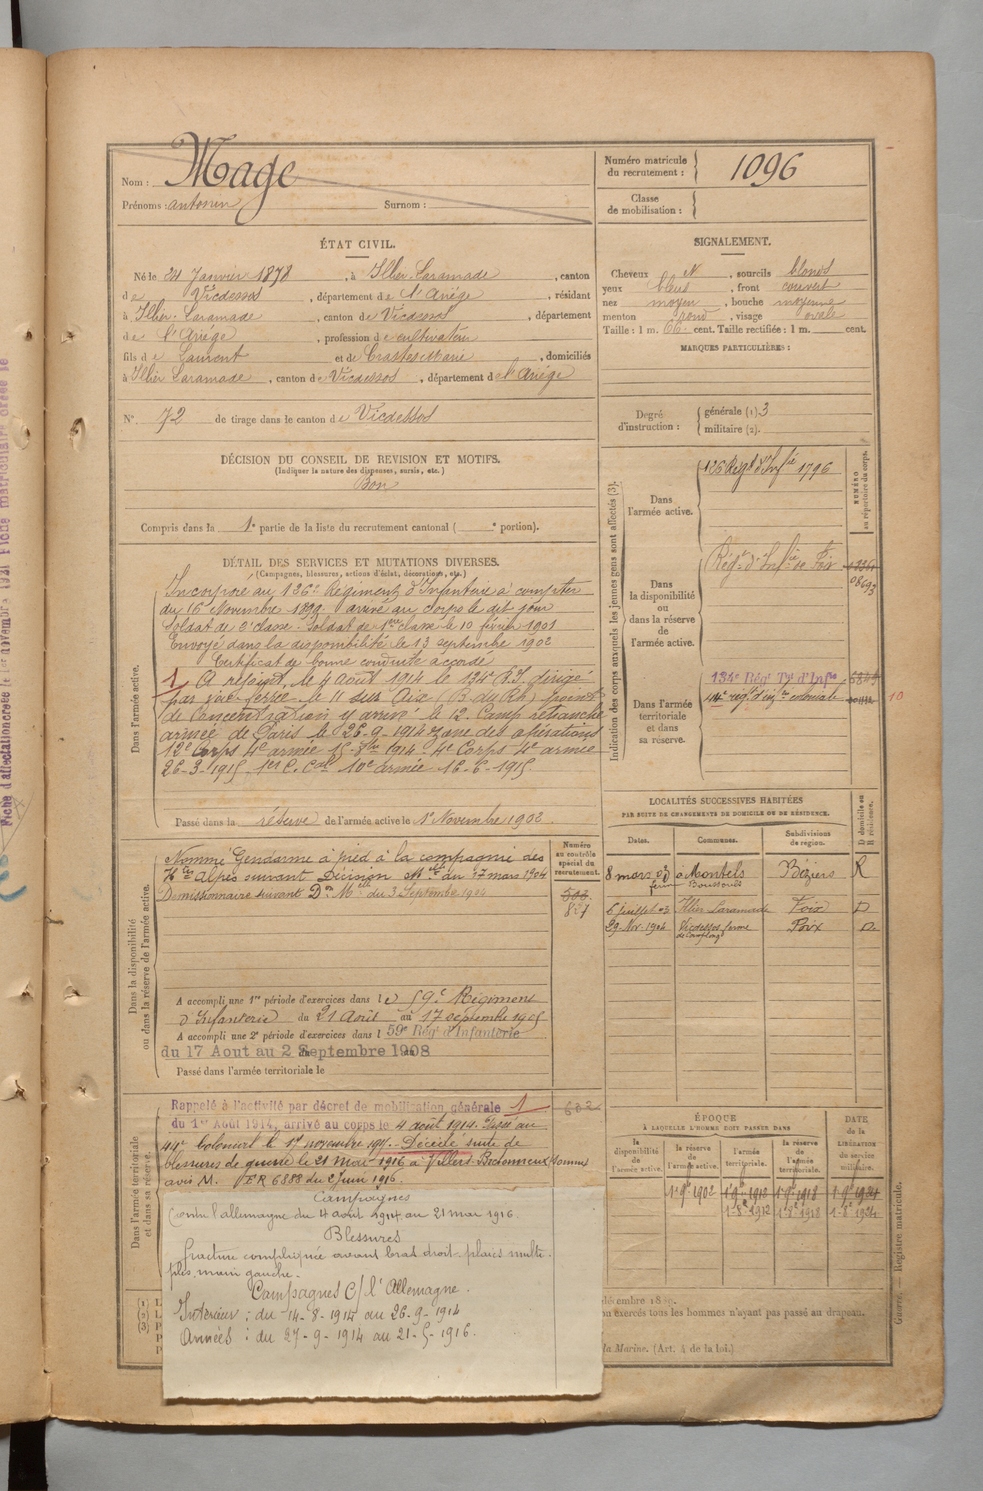 Nom : Mage
Prénoms : Antonin Surnom :
Numéro matricule du recrutement : 1096
Classe de mobilisation :
ÉTAT CIVIL.
Né le 24 Janvier 1878, à Illier-Laramade, canton
de Vicdessos, département de l'Ariège, résidant
à Illier-Laramade, canton de Vicdessos, département
de l'Ariège, profession de cultivateur
fils de Laurent et de Marie, domiciliés
à Illier Laramade, canton de Vicdessos, département de l'Ariège
N° 72 de tirage dans le canton de Vicdessos
SIGNALEMENT.
Cheveux N, sourcils blonds
yeux bleus, front couvert
nez moyen, bouche moyenne
menton rond, visage ovale
Taille : 1 m. 66 cent. Taille rectifiée : 1 m. cent.
MARQUES PARTICULIÈRES :
Degré d'instruction : générale (1) 3
militaire (2).
DÉCISION DU CONSEIL DE REVISION ET MOTIFS.
(Indiquer la nature des dispenses, sursis, etc.)
Bon
Compris dans la 1e partie de la liste du recrutement cantonal ( e portion).
DÉTAIL DES SERVICES ET MUTATIONS DIVERSES.
(Campagnes, blessures, actions d'éclat, décorations, etc.)
Dans l'armée active.
Incorporé au 126e Régiment d'Infanterie à compter
du 16 Novembre 1899. arrivé au corps le dit jour
Soldat de 2e classe. Soldat de 1ère classe le 10 février 1901
Envoyé dans la disponibilité le 13 septembre 1902
Certificat de bonne conduite accordé
1 A rejoint, le 4 Août 1914 le 134e R.T. dirigé
par voie ferrée le 11 sur Aix (B. du Rh.) point
de Concentration y arrivé le 12. Camp retranché
armée de Paris le 26-9-1914 zone des opérations
12e Corps 4e armée 4e Corps 4e armée
26-3-1915. 1er C. Cal 10e armée 16-6-1915.
Passé dans la réserve de l'armée active le 1er Novembre 1902.
Indication des corps auxquels les jeunes gens sont affectés (3).
NUMÉRO au répertoire du corps.
Dans l'armée active.
126 Regt d'Infie 1796
Dans la disponibilité ou dans la réserve de l'armée active.
Régt d'Infie de Foix
08693
Dans l'armée territoriale et dans sa réserve.
134e Régt Tal d'Infie
44e régt d'infie coloniale
10
Dans la disponibilité ou dans la réserve de l'armée active.
Numéro au contrôle spécial du recrutement.
Nommé Gendarme à pied à la compagnie des
Htes Alpes suivant Décision Mlle du 27 mars 1904
Démissionnaire suivant Dn Melle du 3 Septembre 1904
827
A accompli une 1re période d'exercices dans le 59e Régiment
d'Infanterie du 21 Août au 17 septembre 1905
A accompli une 2e période d'exercices dans l 59e Rég d'Infanterie
du 17 Aout au 2 Septembre 1908
Passé dans l'armée territoriale le
LOCALITÉS SUCCESSIVES HABITÉES
PAR SUITE DE CHANGEMENTS DE DOMICILE OU DE RÉSIDENCE.
Dates. Communes. Subdivisions de région. D domicile ou R résidence.
8 mars 03 à Montels Béziers R
6 juillet 03 Illier Laramade Foix D
29 Nov. 1904 Vicdessos Foix D
Dans l'armée territoriale et dans sa réserve.
Rappelé à l'activité par décret de mobilisation générale 1
du 1er Août 1914, arrivé au corps le 4 août 1914. Passé au
44e Colonial le 17 novembre 1915. Décédé suite de
blessures de guerre le 21 mai 1916 à Villers-Bretonneux Somme
avis M. ER 6888 du 2 juin 1916.
632
Campagnes
Contre l'allemagne du 4 août 1914 au 21 mai 1916.
Blessures
fracture compliquée avant bras droit. plaies multi-
ples main gauche.
Campagnes C/ l'Allemagne.
Intérieur : du 14-8-1914 au 26-9-1914
Armées : du 27-9-1914 au 21-5-1916.
ÉPOQUE
À LAQUELLE L'HOMME DOIT PASSER DANS
la disponibilité de l'armée active. la réserve de l'armée active. l'armée territoriale. la réserve de l'armée territoriale.
DATE de la LIBÉRATION du service militaire.
1-9bre 1902 1-9bre 1912 1-9bre 1918 1-9bre 1924
1-8bre 1912 1-8bre 1918 1-8bre 1924
(1)
(2)
(3)
décembre 18
exercés tous les hommes n'ayant pas passé au drapeau.
la Marine. (Art. 4 de la loi.)
Guerre. — Registre matricule.